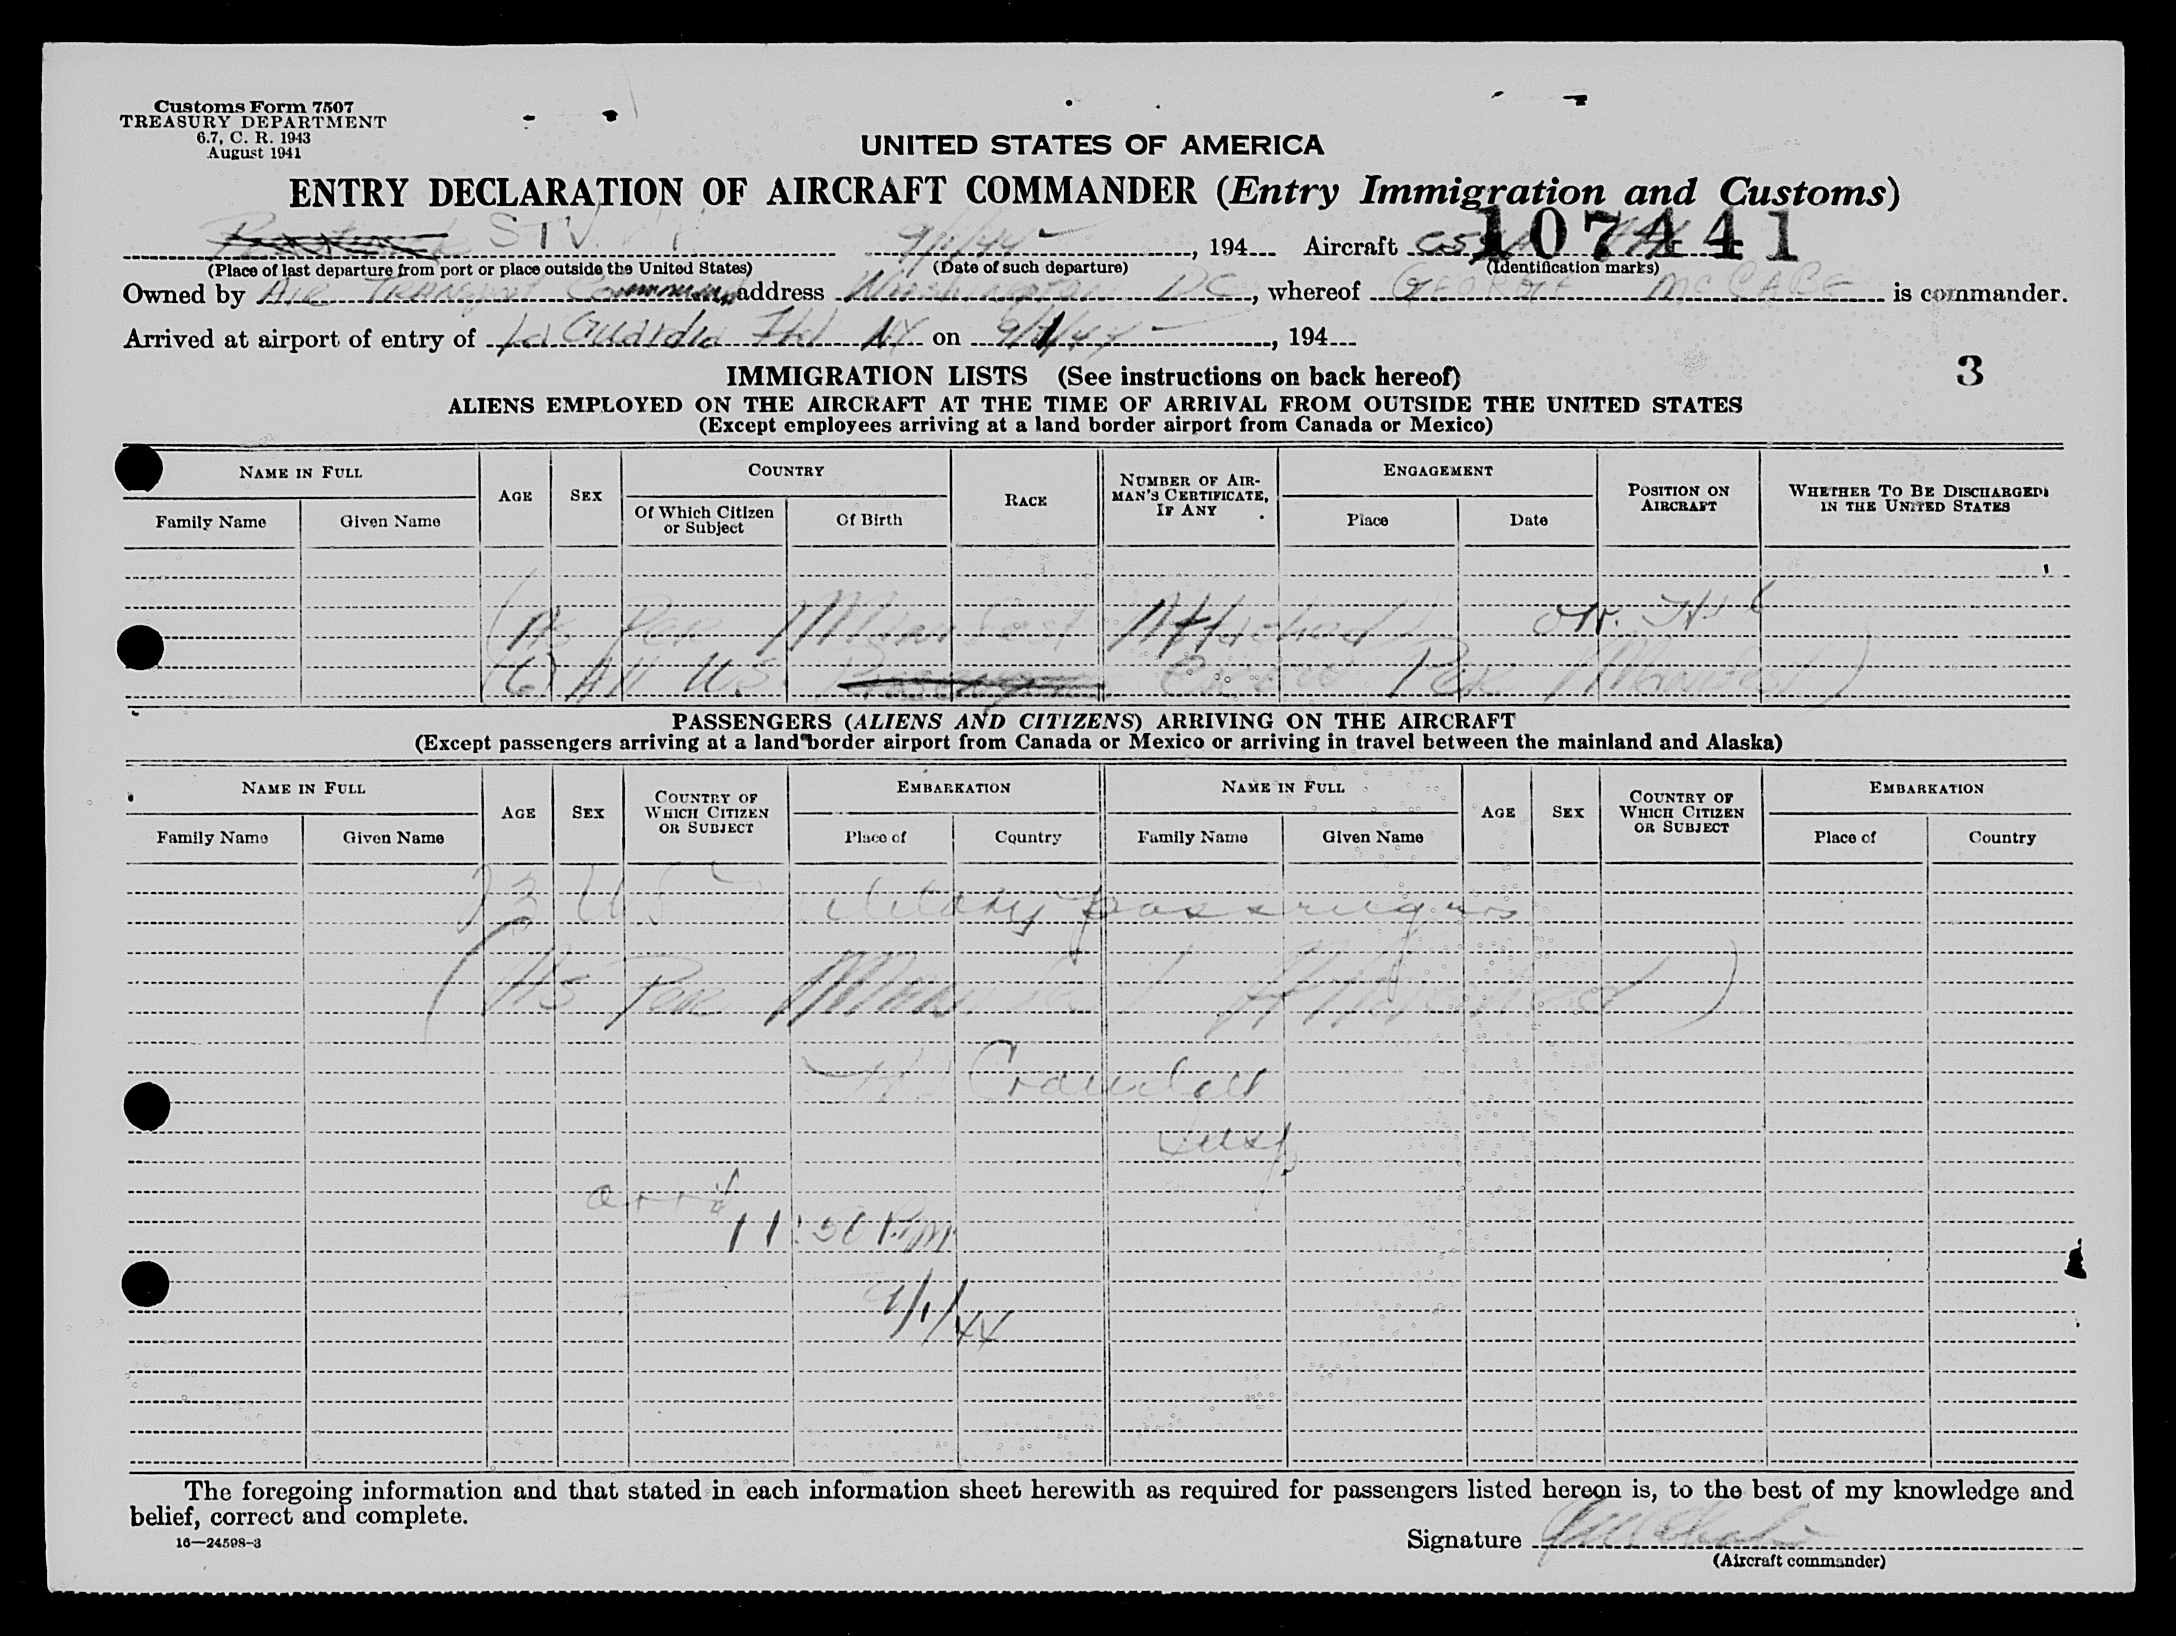 Customs Form 7507
TREASURY DEPARTMENT
6.7, C. R. 1943
August 1941
UNITED STATES OF AMERICA
ENTRY DECLARATION OF AIRCRAFT COMMANDER (Entry Immigration and Customs)
107441
9/1/44 , 194 Aircraft
(Place of last departure from port or place outside the United States) (Date of such departure) (Identification marks)
Owned by Air Transport Command, address Washington DC, whereof GEORGE McCABE is commander.
Arrived at airport of entry of La Guardia Fld NY on 9/1/44, 194
3
IMMIGRATION LISTS (See instructions on back hereof)
ALIENS EMPLOYED ON THE AIRCRAFT AT THE TIME OF ARRIVAL FROM OUTSIDE THE UNITED STATES
(Except employees arriving at a land border airport from Canada or Mexico)
NAME IN FULL AGE SEX COUNTRY RACE NUMBER OF AIRMAN'S CERTIFICATE, IF ANY ENGAGEMENT POSITION ON AIRCRAFT WHETHER TO BE DISCHARGED IN THE UNITED STATES
Family Name Given Name Of Which Citizen or Subject Of Birth Place Date
(As Per Manifest Attached
(6) All US Per Manifest)
PASSENGERS (ALIENS AND CITIZENS) ARRIVING ON THE AIRCRAFT
(Except passengers arriving at a land border airport from Canada or Mexico or arriving in travel between the mainland and Alaska)
NAME IN FULL AGE SEX COUNTRY OF WHICH CITIZEN OR SUBJECT EMBARKATION NAME IN FULL AGE SEX COUNTRY OF WHICH CITIZEN OR SUBJECT EMBARKATION
Family Name Given Name Place of Country Family Name Given Name Place of Country
U S military passengers
(As Per Manifest Attached)
Crandall
Insp
arr'd
11:50 P.M.
9/1/44
The foregoing information and that stated in each information sheet herewith as required for passengers listed hereon is, to the best of my knowledge and
belief, correct and complete.
16—24598-3
Signature
(Aircraft commander)